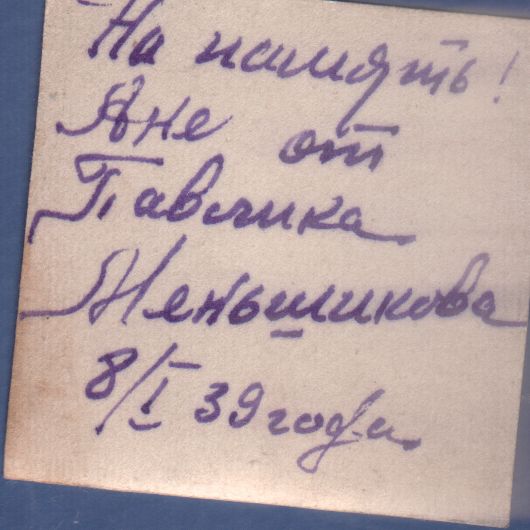 На память!
Яне от
Павлика
Меньшикова
8/I 39 года